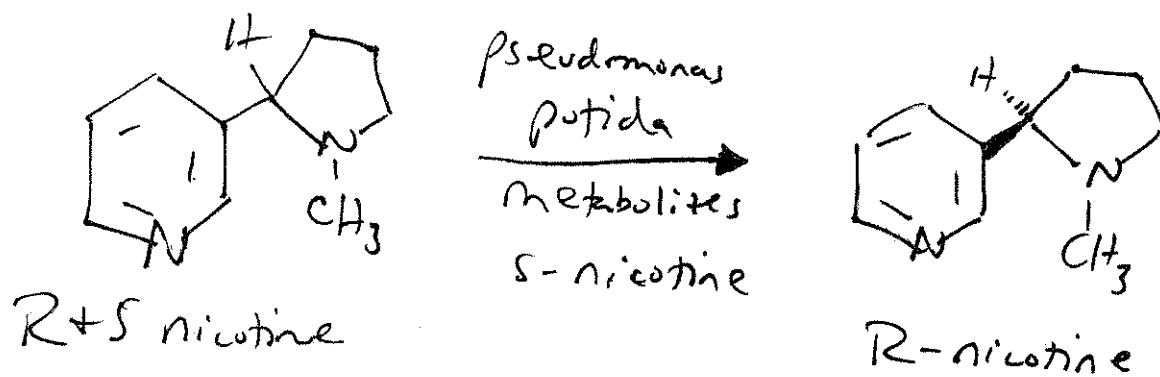 H
N
CH3
N
R+S nicotine
pseudmonas
putida
metabolites
S-nicotine
H
N
CH3
N
R-nicotine